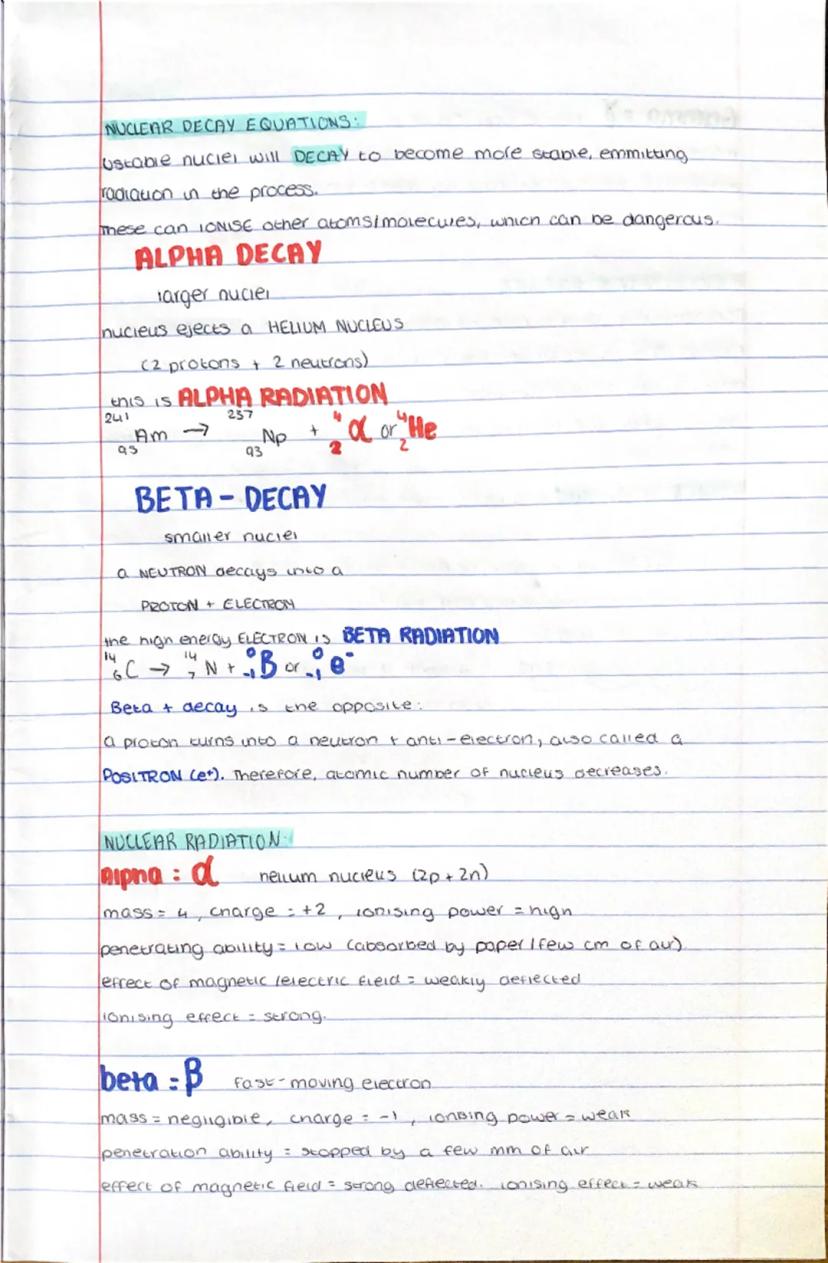 NUCLEAR DECAY EQUATIONS:
Ustable nuclei will DECAY to become more stable, emmitting
radiation in the process.
These can IONISE other atoms/molecules, which can be dangerous.
ALPHA DECAY
larger nuclei
nucleus ejects a HELIUM NUCLEUS
(2 protons + 2 neutrons)
this is ALPHA RADIATION
²⁴¹₉₅Am → ²³⁷₉₃Np + ⁴₂α or ⁴₂He
BETA - DECAY
smaller nuclei
a NEUTRON decays into a
PROTON + ELECTRON
the high energy ELECTRON is BETA RADIATION
¹⁴₆C → ¹⁴₇N + ⁰₋₁B or ⁰₋₁e⁻
Beta + decay is the opposite:
a proton turns into a neutron + anti-electron, also called a
POSITRON (e⁺). Therefore, atomic number of nucleus decreases.
NUCLEAR RADIATION:
Alpha : α helium nucleus (2p + 2n)
mass = 4, charge = +2, ionising power = high
penetrating ability = low (absorbed by paper/few cm of air)
effect of magnetic/electric field = weakly deflected
ionising effect = strong.
beta = β fast-moving electron
mass = negligible, charge = -1, ionising power = weak
penetration ability = stopped by a few mm of air
effect of magnetic field = strong deflected. ionising effect = weak